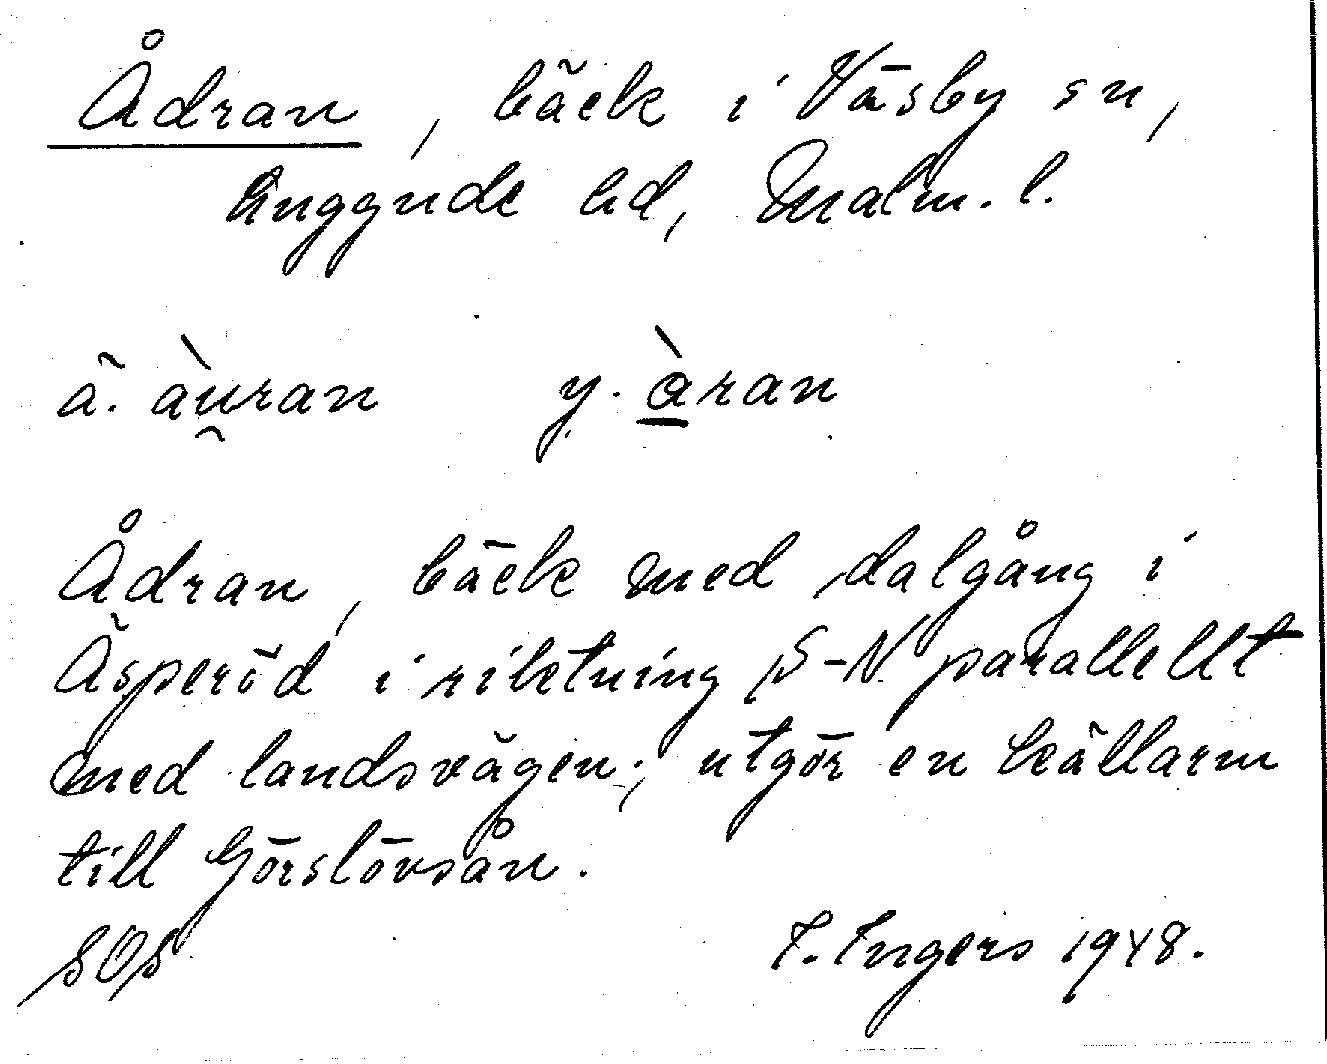 Ådran, bäck i Väsby sn,
Luggude hd, Malm. l.
ä. àu̯ran y. àran
Ådran, bäck med dalgång i
Äsperöd i riktning S-N parallellt
med landsvägen; utgör en källarm
till Görslövsån.
SOS I. Ingers 1948.